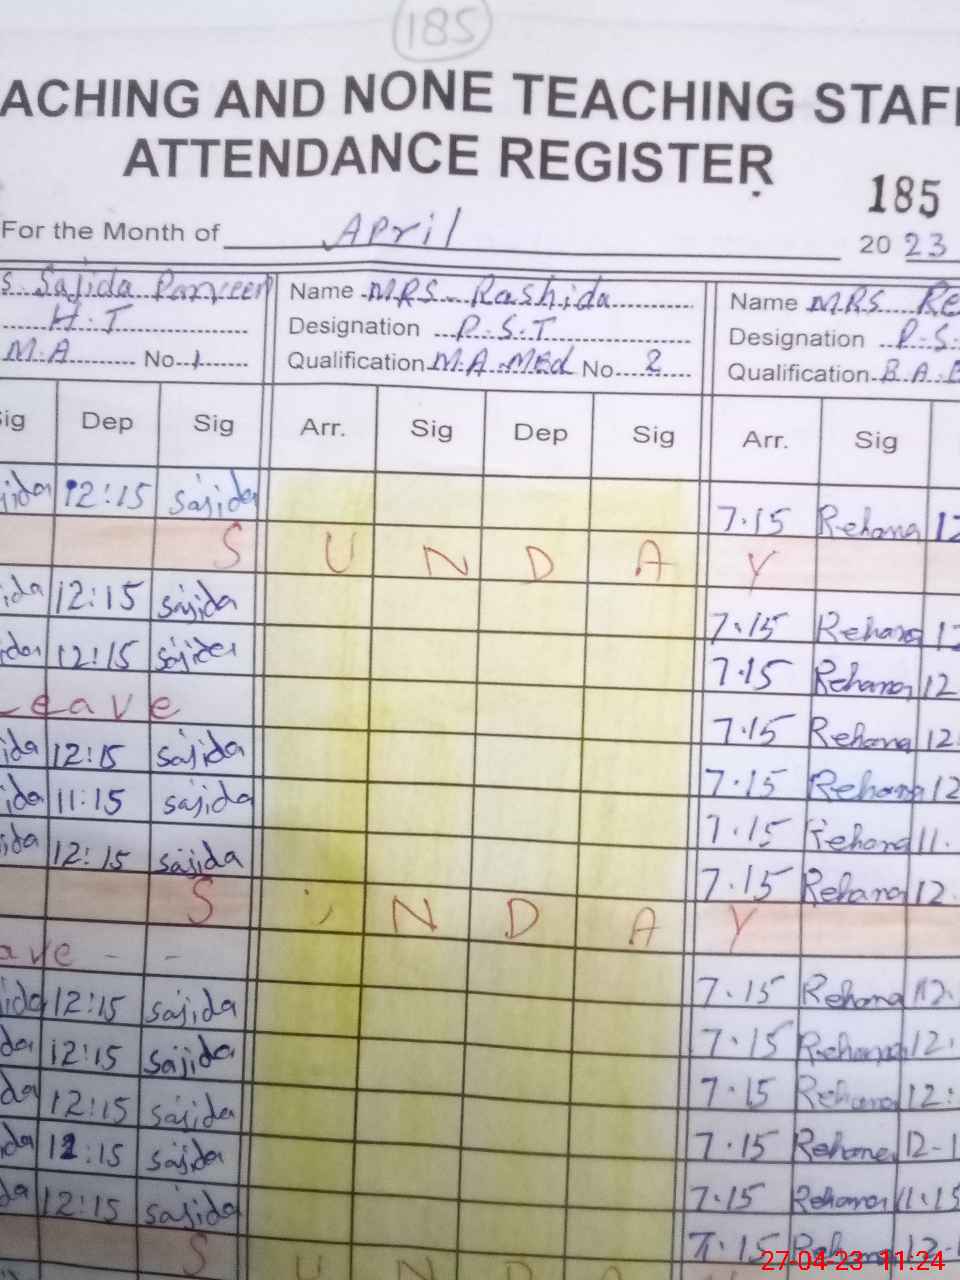 185
ACHING AND NONE TEACHING STAF
ATTENDANCE REGISTER
185
For the Month of April 2023
s. Sajida Parveen Name MRS. Rashida Name MRS Re
H.T Designation P.S.T Designation P.S.
M.A No. 1 Qualification M.A. MEd No. 2 Qualification B.A.B
ig Dep Sig Arr. Sig Dep Sig Arr. Sig
jida 12:15 sajida 7.15 Rehana 12
S U N D A Y
ida 12:15 sajida 7.15 Rehana 12
ida 12:15 sajida 7.15 Rehana 12
Leave 7.15 Rehana 12
ida 12:15 sajida 7.15 Rehana 12
ida 11:15 sajida 7.15 Rehana 11.
ida 12:15 sajida 7.15 Rehana 12.
S N D A Y
ave - - 7.15 Rehana 12.
ida 12:15 sajida 7.15 Rehana 12.
da 12:15 sajida 7.15 Rehana 12:
da 12:15 sajida 7.15 Rehana 12-1
da 12:15 sajida 7.15 Rehana 11.15
da 12:15 sajida 7.15 Rehana 12-1
S U N D A
27-04-23 11:24